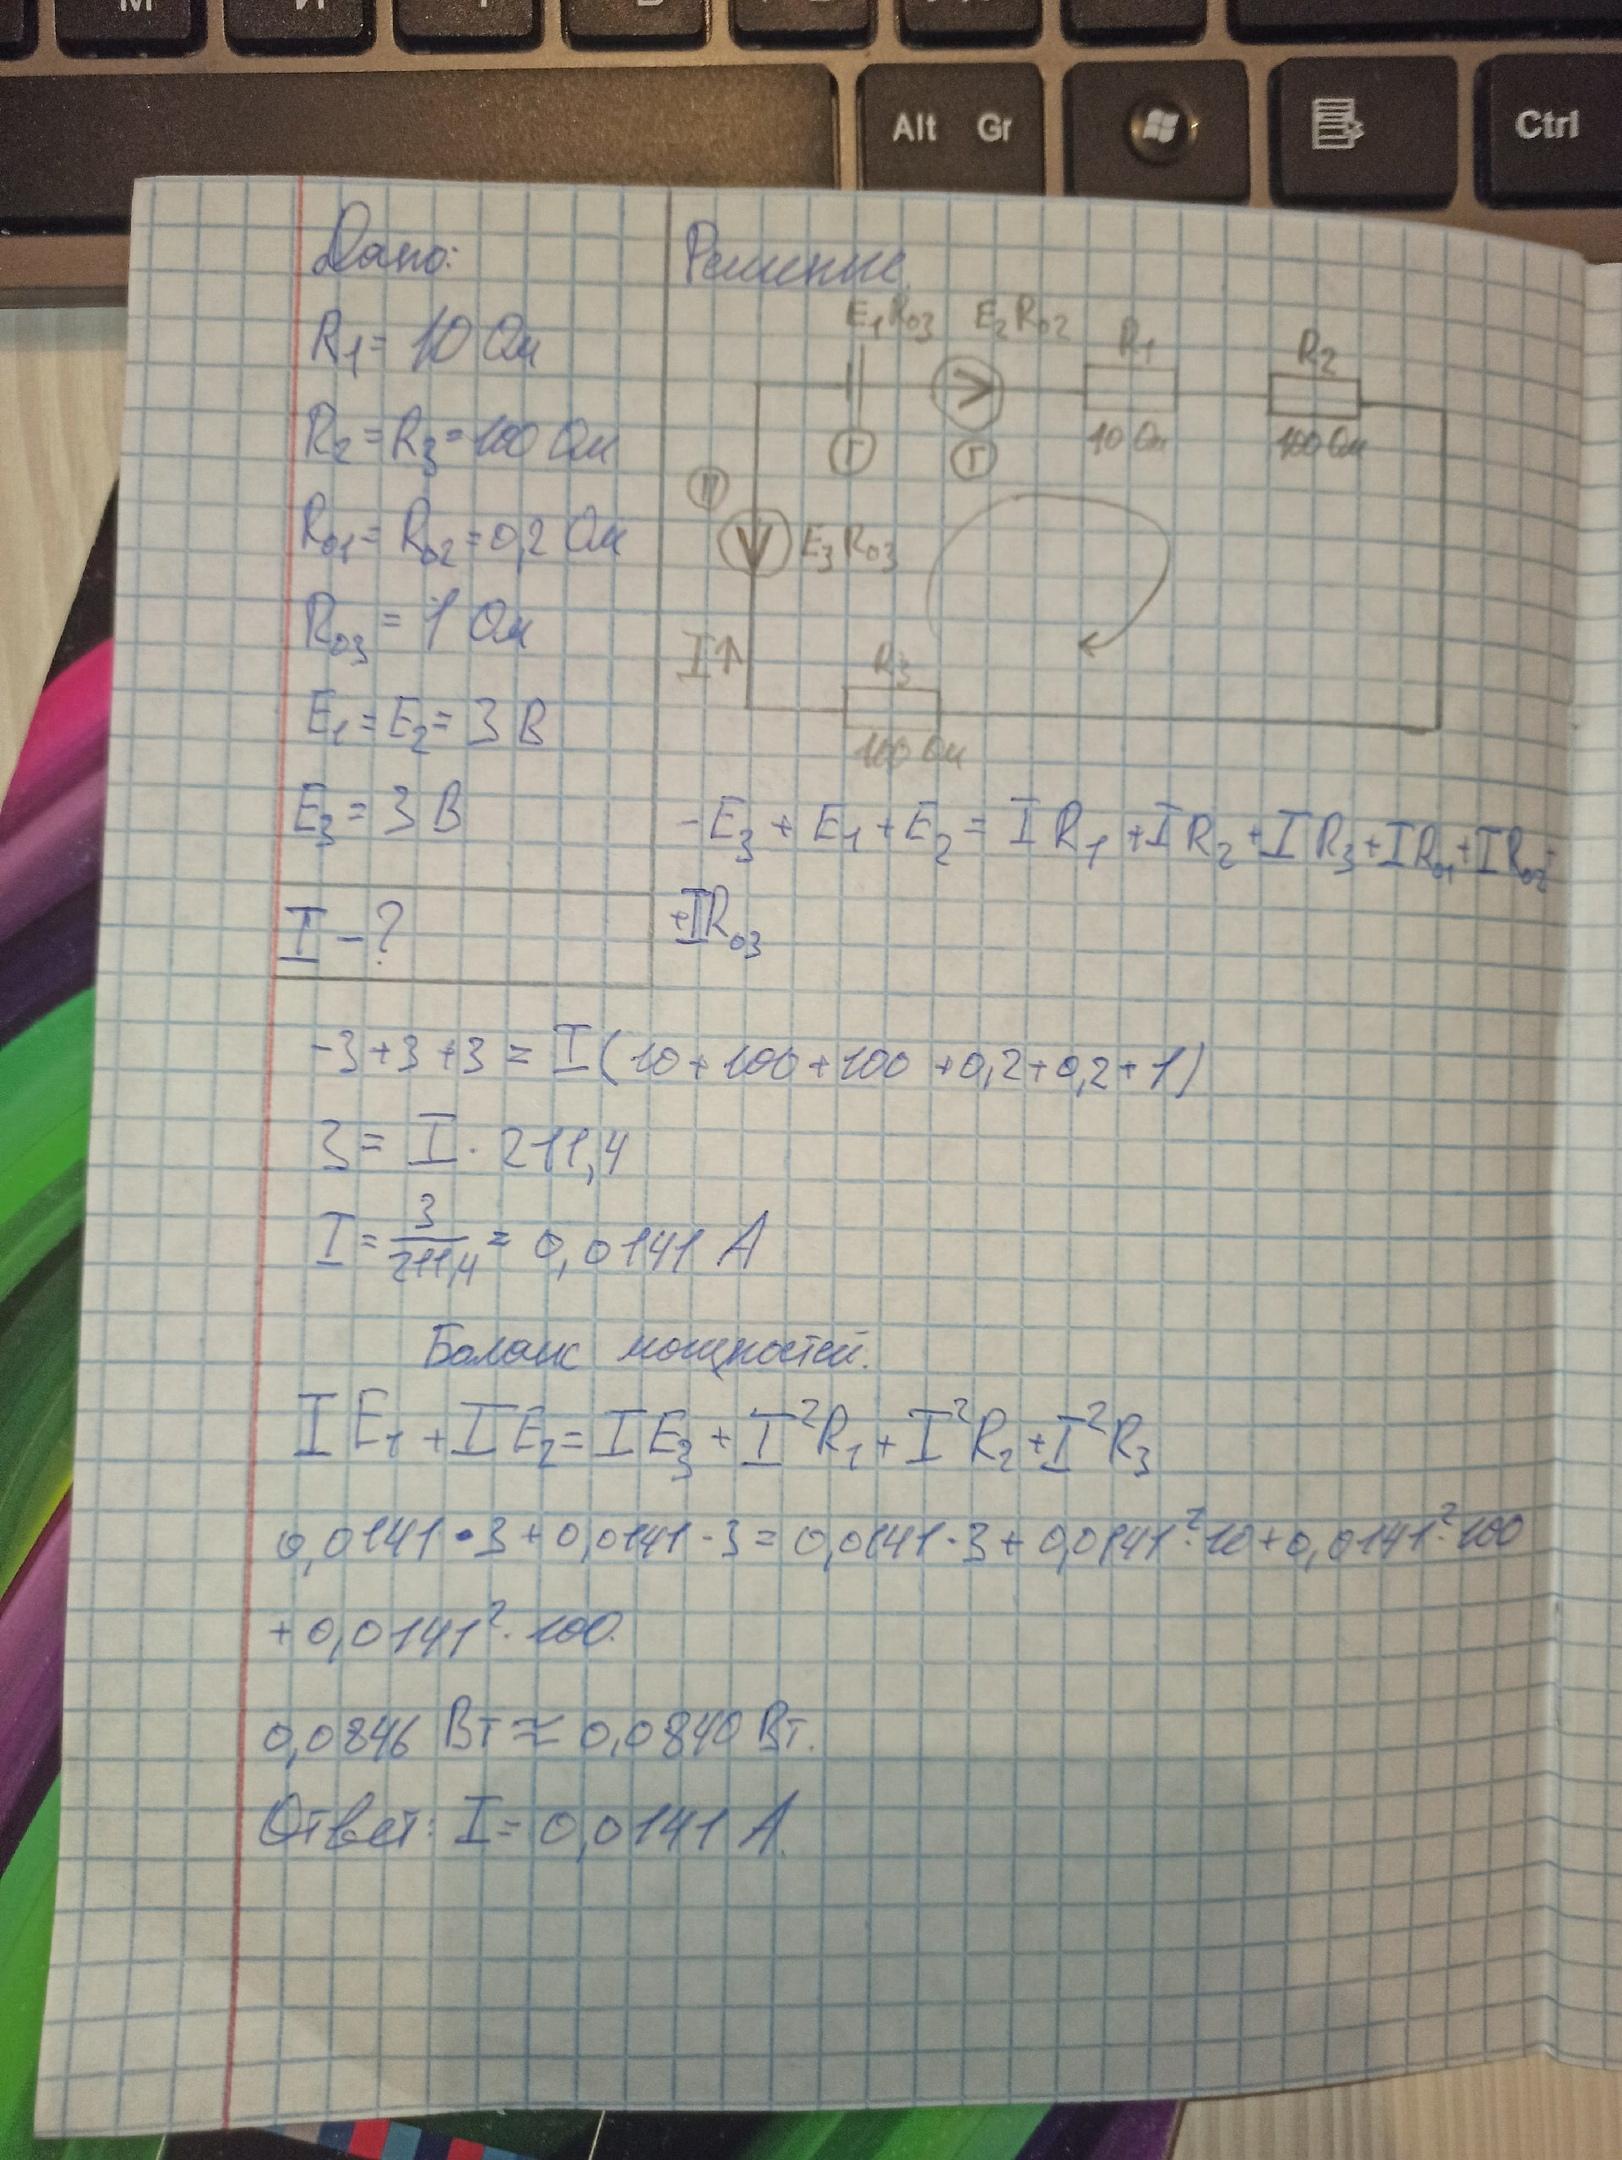 Alt Gr
Ctrl
Дано:
Решение
R₁ = 10 Ом
R₂ = R₃ = 100 Ом
R₀₁ = R₀₂ = 0,2 Ом
R₀₃ = 1 Ом
E₁ = E₂ = 3 В
E₃ = 3 В
I - ?
E₁ R₀₃
E₂ R₀₂
R₁
R₂
Г
Г
10 Ом
100 Ом
П
E₃ R₀₃
I↑
R₃
100 Ом
-E₃ + E₁ + E₂ = IR₁ + IR₂ + IR₃ + IR₀₁ + IR₀₂ +
+IR₀₃
-3+3+3 = I(10+100+100+0,2+0,2+1)
3 = I · 211,4
I = 3/211,4 = 0,0141 А
Баланс мощностей.
IE₁ + IE₂ = IE₃ + I²R₁ + I²R₂ + I²R₃
0,0141·3+0,0141·3=0,0141·3+0,0141²·10+0,0141²·100
+0,0141²·100.
0,0846 Вт ≈ 0,0840 Вт.
Ответ: I = 0,0141 А.